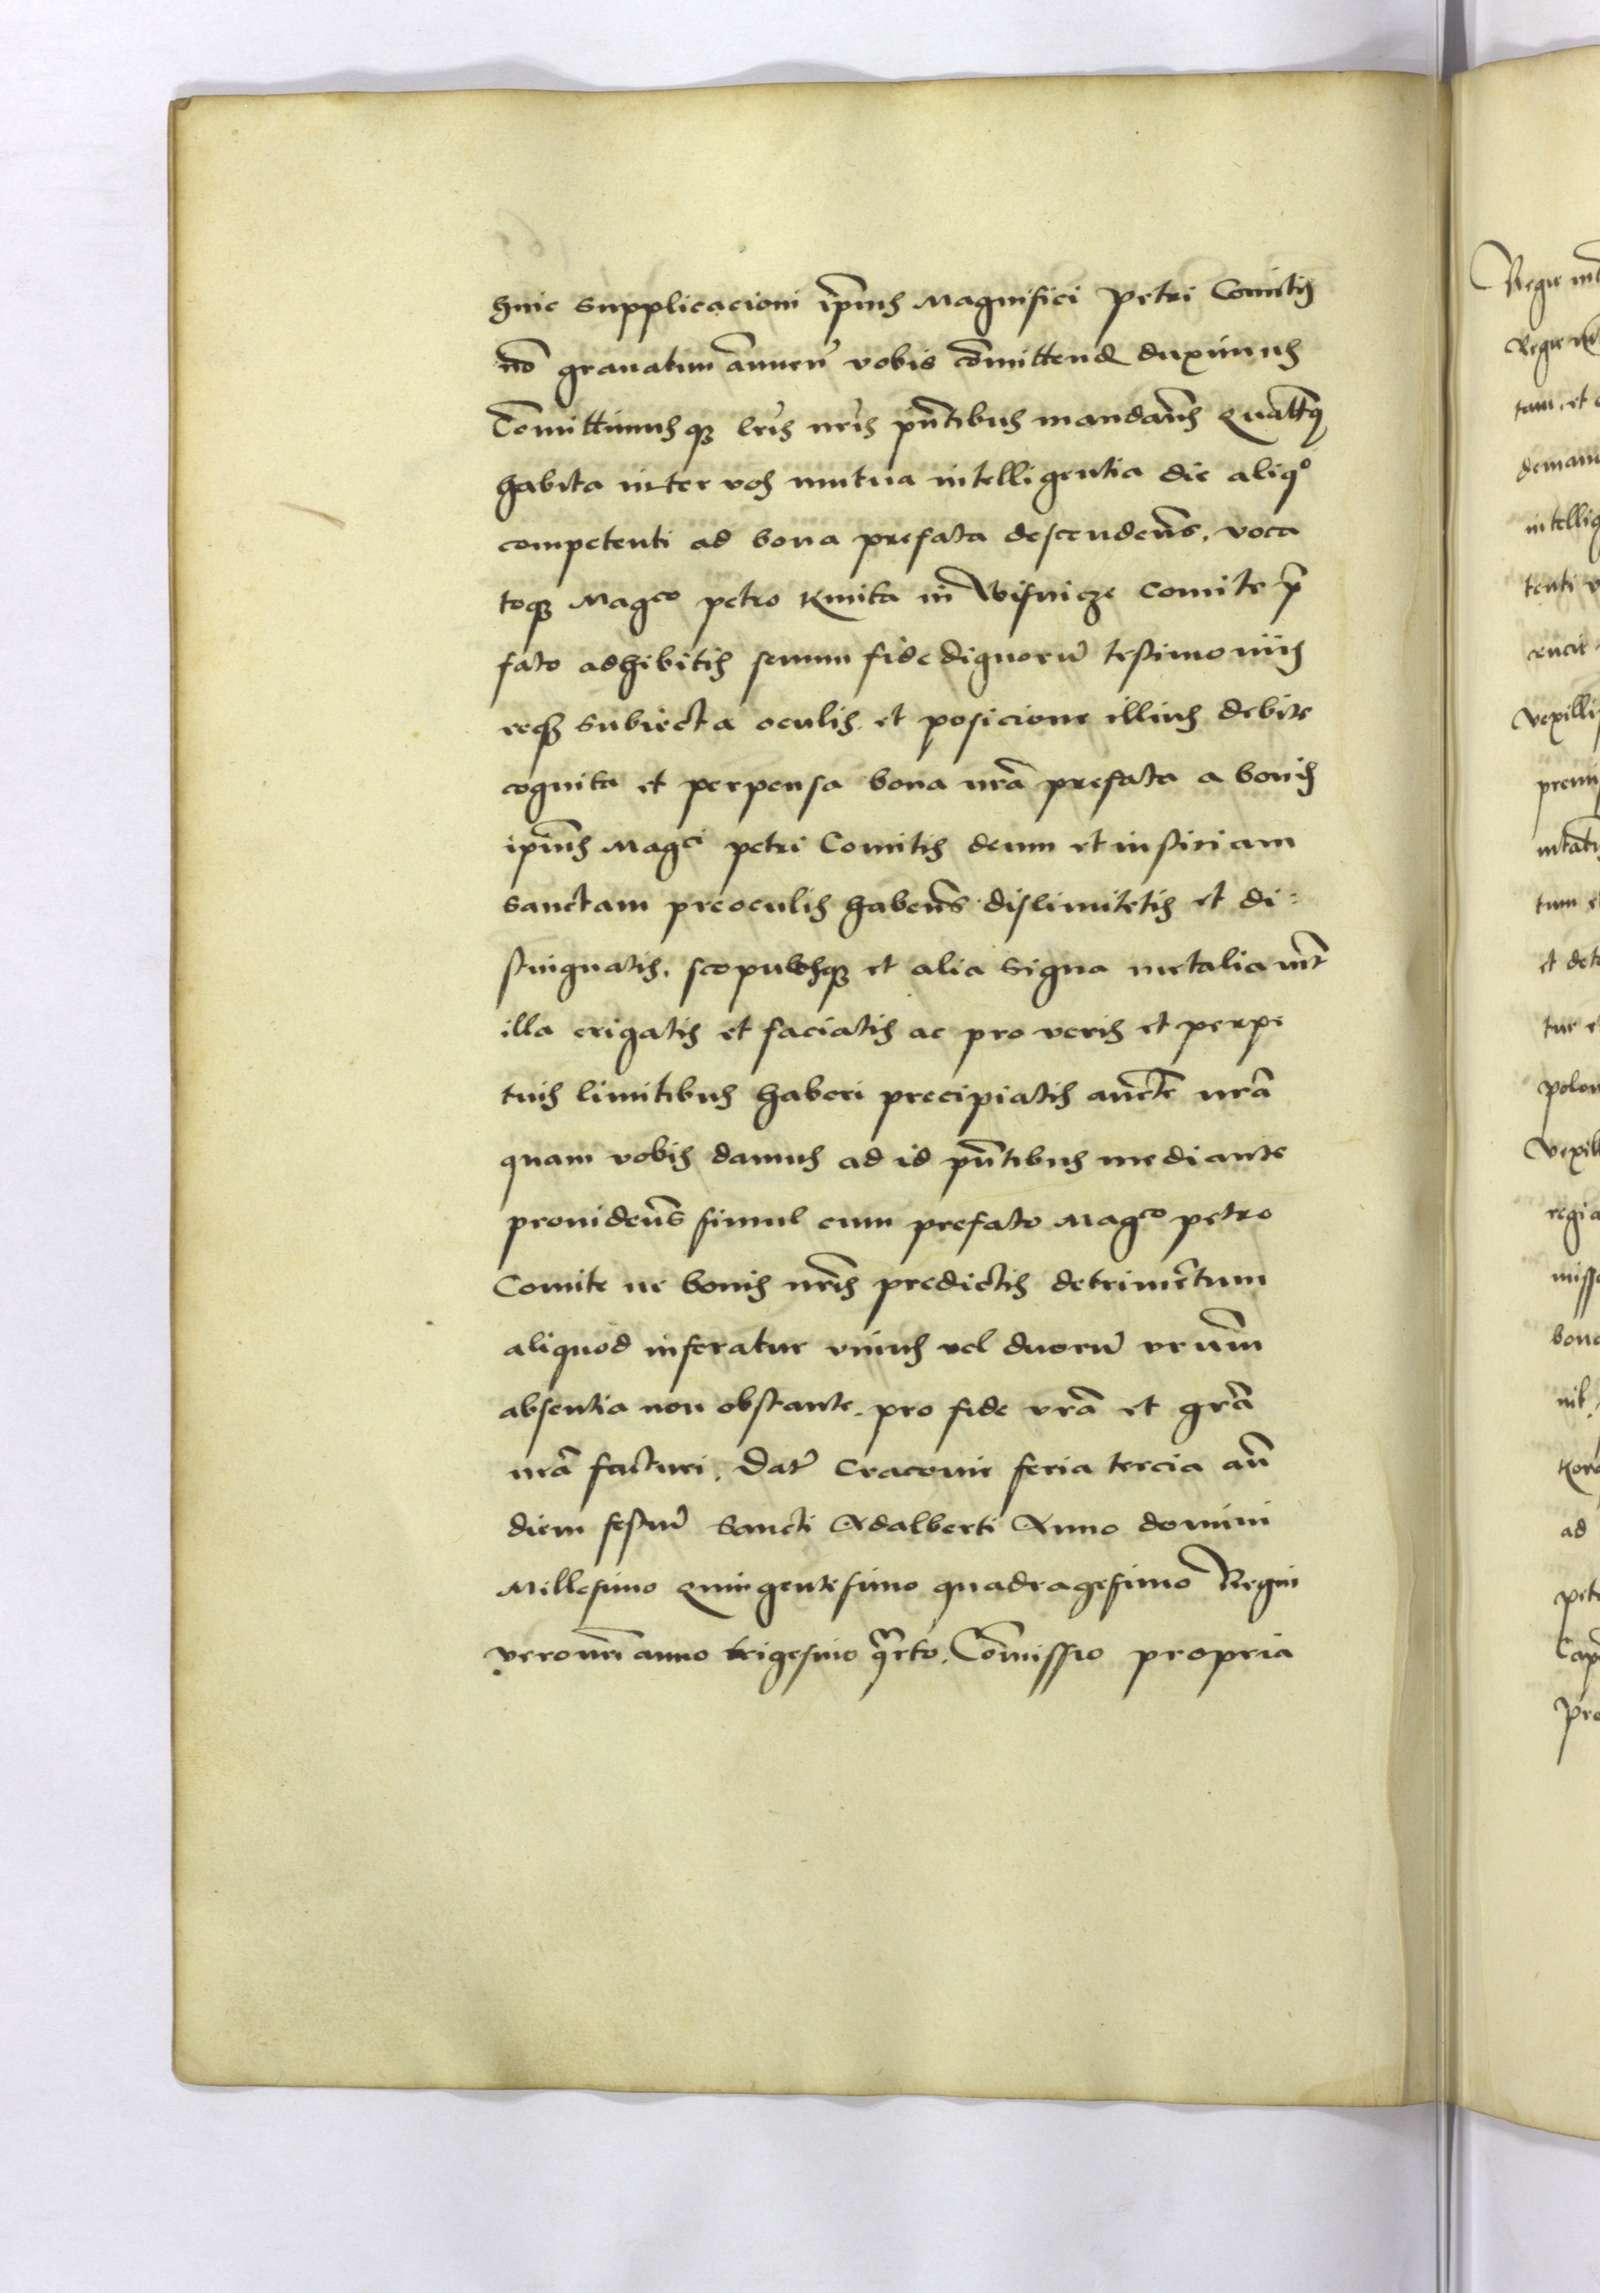 huic supplicacioni ip̄ius Magnifici petri Comitis
nō grauatim ānnuen̄ vobis cōmittend duximus
Cōmittimusq3 lr̄is nr̄is pn̄tibus mandan̄s Quatt9
habita inter vos mutua intelligentia die aliqᵒ
competenti ad bona prefata descenden̄s, voca
toq3 Magco petro kmita in Wisnicze Comite p̄
fato adhibitis senum fidedignorū testimoniis
reqʒ subiecta oculis et posicione illius debite
cognita et perpensa bona nr̄a prefata a bonis
ip̄ius Magci petri Comitis deum et iusticiam
sanctam preoculis haben̄s dislimitetis et di:
stinguatis, scopulosq3 et alia signa metalia int̄
illa erigatis et faciatis ac pro veris et perpe
tuis limitibus haberi precipiatis auctte nr̄a
quam vobis damus ad id pn̄tibus mediante
prouiden̄s simul cum prefato Magco petro
Comite ne bonis nr̄is predictis detrimentum
aliquod inferatur vnius vel duorū vr̄um
absentia non obstante. pro fide vr̄a et gr̄a
nr̄a facturi. Dat̄ Cracouie feria tercia an̄
diem festū Sancti Adalberti Anno domini
Millesimo Quingentesimo quadragesimo Regni
vero nr̄i anno trigesimo q̄rto. Cōmissio propria
Regie
Regie
tam, et
intellig
tenti
vexilli
tum
et dete
tur
polon
vexill
regia
bona
ad
petr